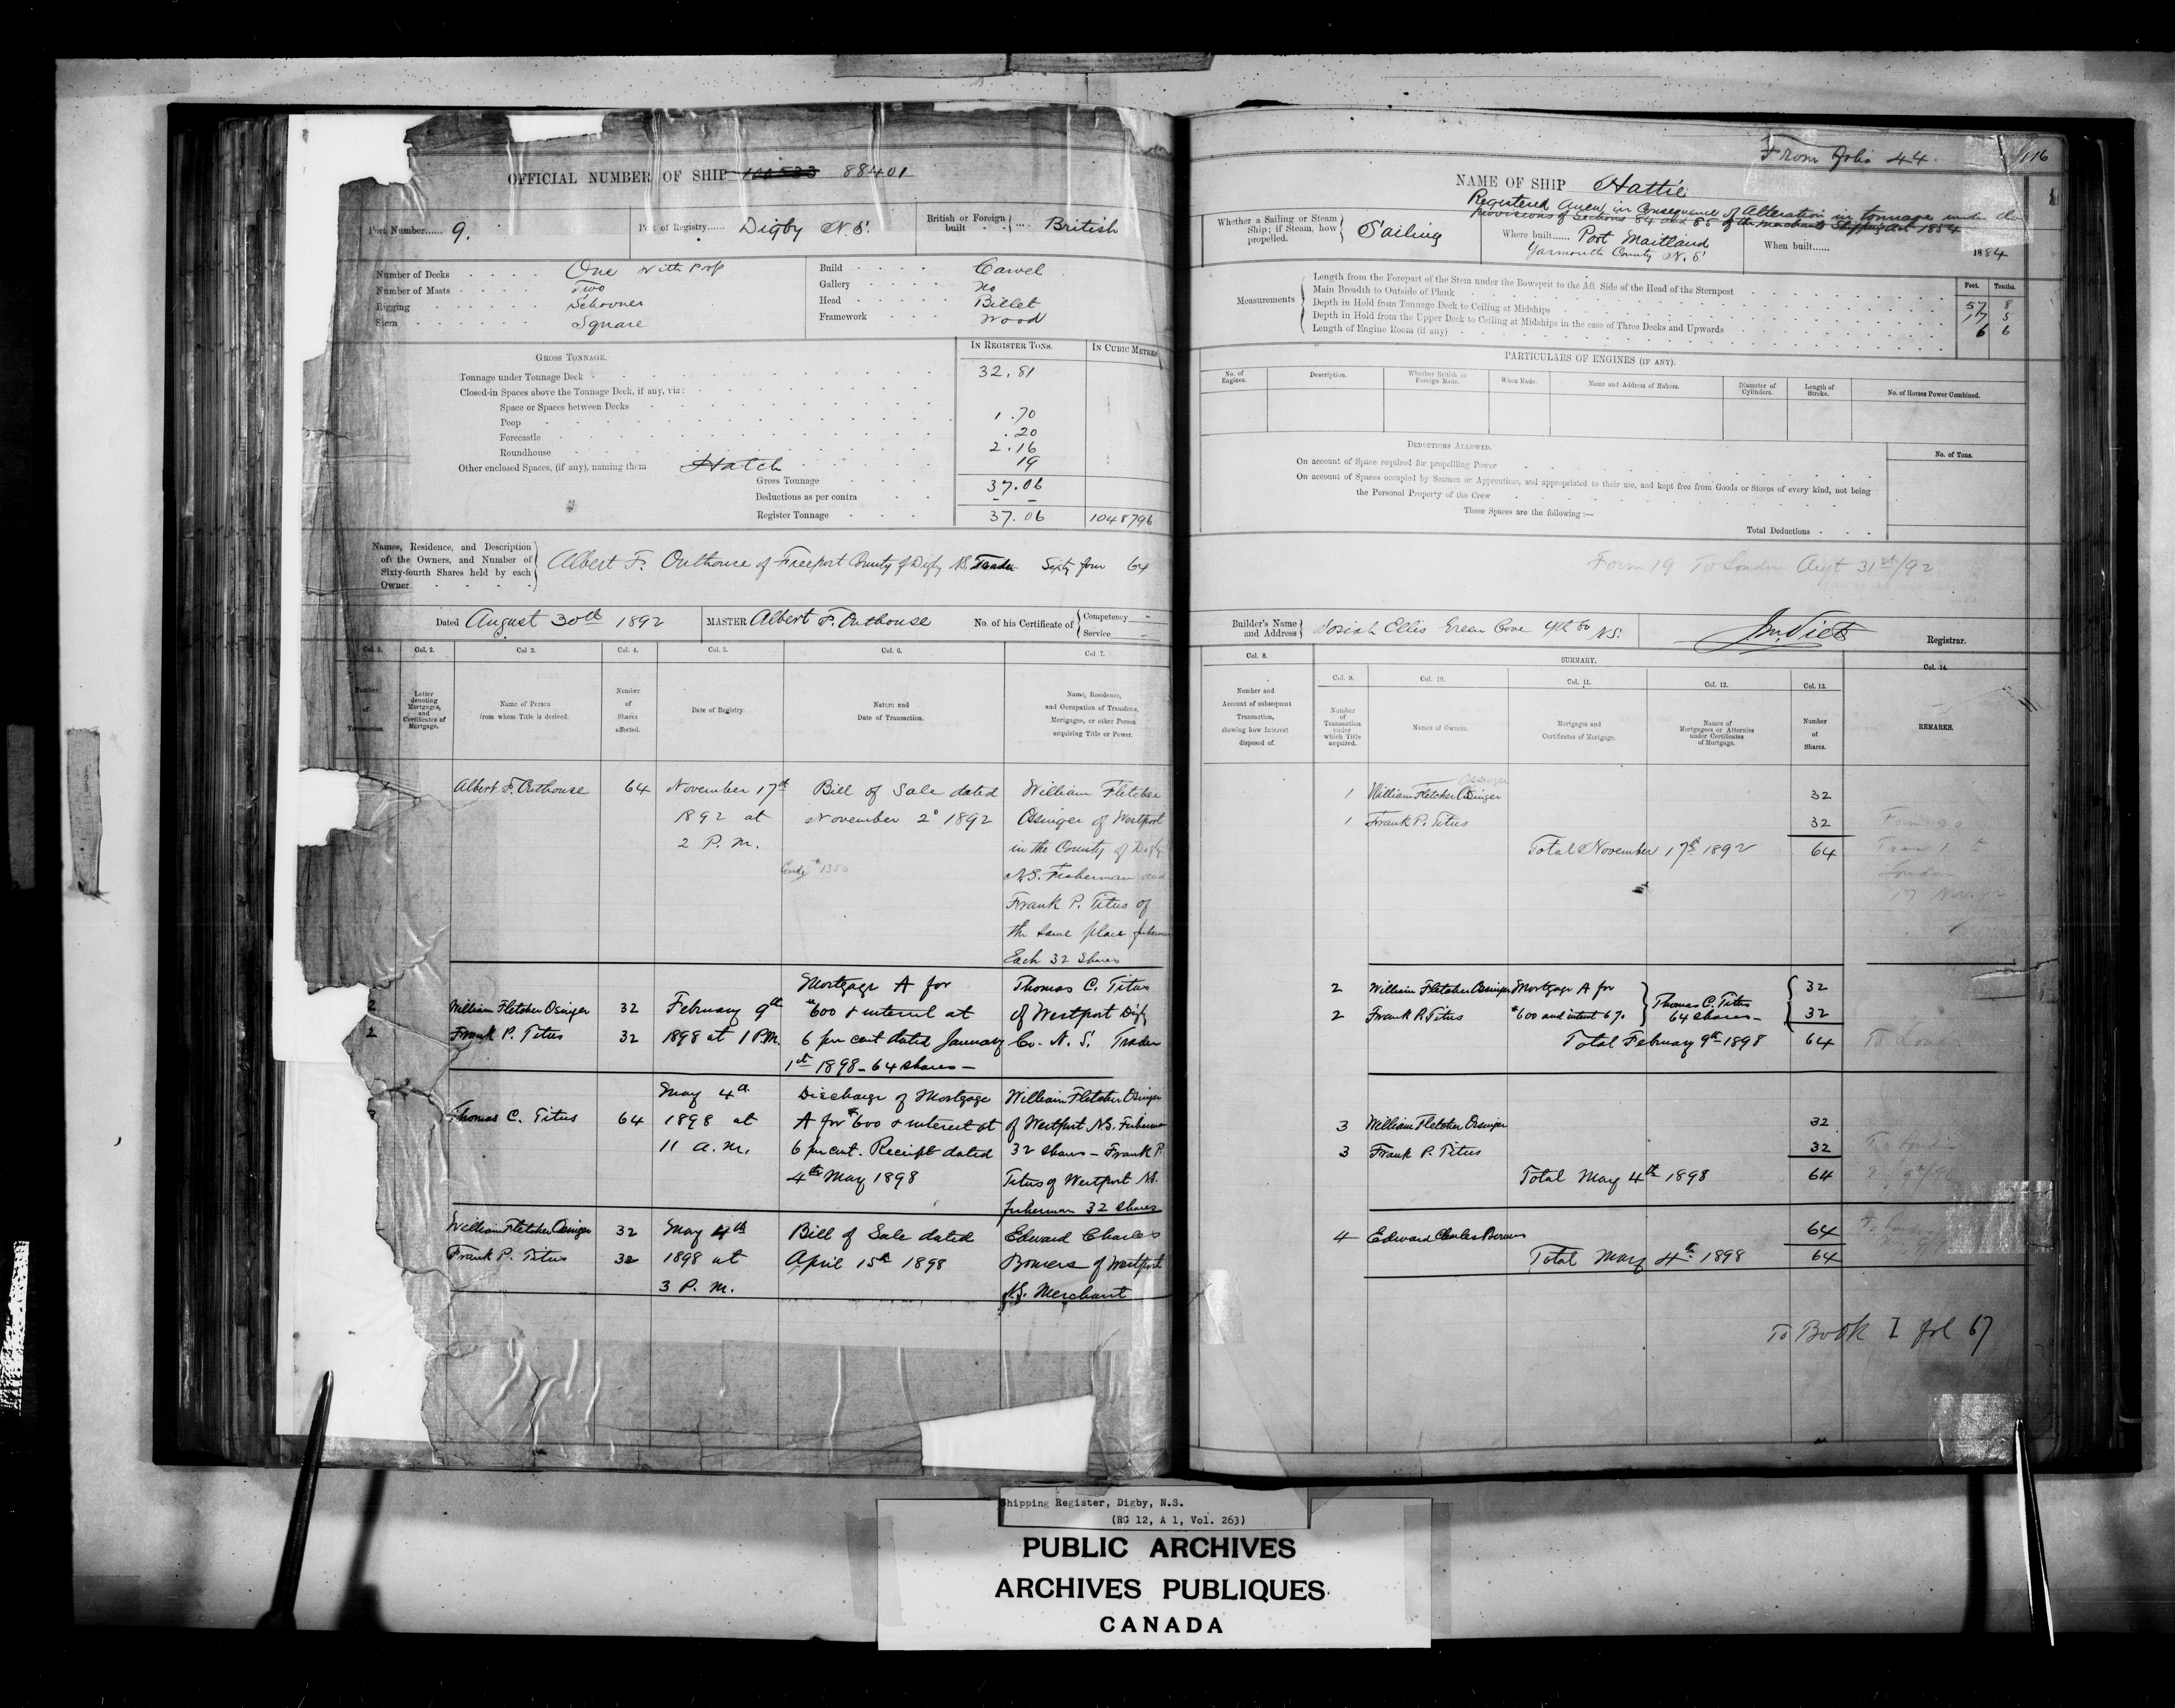 OFFICIAL NUMBER OF SHIP 88401
Port Number...... 9.
Port of Registry...... Digby N.S.
British or Foreign built .... British
Number of Decks One with Poop
Number of Masts Two
Rigging Schooner
Stern Square
Build Carvel
Gallery No
Head Billet
Framework Wood
GROSS TONNAGE.
IN REGISTER TONS.
IN CUBIC METRES
Tonnage under Tonnage Deck 32.81
Closed-in Spaces above the Tonnage Deck, if any, viz:
Space or Spaces between Decks
Poop 1.70
Forecastle .20
Roundhouse 2.16
Other enclosed Spaces, (if any), naming them Hatch 19
Gross Tonnage 37.06
Deductions as per contra - -
Register Tonnage 37.06 1048796
Names, Residence, and Description
of the Owners, and Number of
Sixty-fourth Shares held by each
Owner
Albert F. Outhouse of Freeport County of Digby N.S. Trader Sixty four 64
Dated August 30th 1892
MASTER Albert F. Outhouse
No. of his Certificate of { Competency -
Service -
Col. 1. Col. 2. Col 3. Col. 4. Col. 5. Col. 6. Col 7.
Number of Transaction
Letter denoting Mortgages, and Certificates of Mortgage.
Name of Person from whom Title is derived.
Number of Shares affected.
Date of Registry.
Nature and Date of Transaction.
Name, Residence, and Occupation of Transferee, Mortgagee, or other Person acquiring Title or Power.
Albert F. Outhouse 64 November 17th Bill of Sale dated William Fletcher
1892 at November 2d 1892 Ossinger of Westport
2 P.M. in the County of Digby
1350
N.S. Fisherman and
Frank P. Titus of
the same place fisherman
Each 32 Shares
Mortgage A for Thomas C. Titus
2 William Fletcher Osinger 32 February 9th $600 & interest at of Westport Digby
2 Frank P. Titus 32 1898 at 1 P.M. 6 per cent dated January Co. N.S. Trader
1st 1898 - 64 shares -
May 4th Discharge of Mortgage William Fletcher Osinger
Thomas C. Titus 64 1898 at A for $600 & interest at of Westport N.S. Fisherman
11 a.m. 6 per cent. Receipt dated 32 shares - Frank P.
4th May 1898 Titus of Westport N.S.
fisherman 32 shares
William Fletcher Ossinger 32 May 4th Bill of Sale dated Edward Charles
Frank P. Titus 32 1898 at April 15th 1898 Bowers of Westport
3 P.M. N.S. Merchant
From folio 44.
116
NAME OF SHIP Hattie
Registered anew in Consequence of Alteration in tonnage under the
provisions of Sections 84 and 85 of the Merchants Shipping Act 1854
Whether a Sailing or Steam
Ship; if Steam, how
propelled.
Sailing
Where built...... Port Maitland
Yarmouth County N.S.
When built...... 1884
Measurements
Feet. Tenths.
Length from the Forepart of the Stem under the Bowsprit to the Aft Side of the Head of the Sternpost 57 8
Main Breadth to Outside of Plank 17 5
Depth in Hold from Tonnage Deck to Ceiling at Midships 6 6
Depth in Hold from the Upper Deck to Ceiling at Midships in the case of Three Decks and Upwards
Length of Engine Room (if any)
PARTICULARS OF ENGINES (IF ANY).
No. of Engines.
Description.
Whether British or Foreign Made.
When Made.
Name and Address of Makers.
Diameter of Cylinders.
Length of Stroke.
No. of Horses Power Combined.
DEDUCTIONS ALLOWED.
No. of Tons.
On account of Space required for propelling Power
On account of Spaces occupied by Seamen or Apprentices, and appropriated to their use, and kept free from Goods or Stores of every kind, not being
the Personal Property of the Crew
These Spaces are the following:—
Total Deductions
Form 19 To London Augt 31st/92
Builder's Name and Address } Josiah Ellis Green Cove Yth Co N.S.
Registrar.
Col. 8.
SUMMARY.
Col. 9. Col. 10. Col. 11. Col. 12. Col. 13. Col. 14.
Number and Account of subsequent Transaction, showing how Interest disposed of.
Number of Transaction under which Title acquired.
Names of Owners.
Mortgages and Certificates of Mortgage.
Names of Mortgagees or Attornies under Certificates of Mortgage.
Number of Shares.
REMARKS.
Ossinger
1 William Fletcher Osinger 32
1 Frank P. Titus 32
Total November 17th 1892 64
London
17 Nov.
2 William Fletcher Osinger Mortgage A for } Thomas C. Titus { 32
2 Frank P. Titus $600 and interest 6%. 64 shares - 32
Total February 9th 1898 64
To London
3 William Fletcher Ossinger 32
3 Frank P. Titus 32
Total May 4th 1898 64
4 Edward Charles Bowers 64
Total May 4th 1898 64
To Book I fol 67
Shipping Register, Digby, N.S.
(RG 12, A 1, Vol. 263)
PUBLIC ARCHIVES
ARCHIVES PUBLIQUES
CANADA